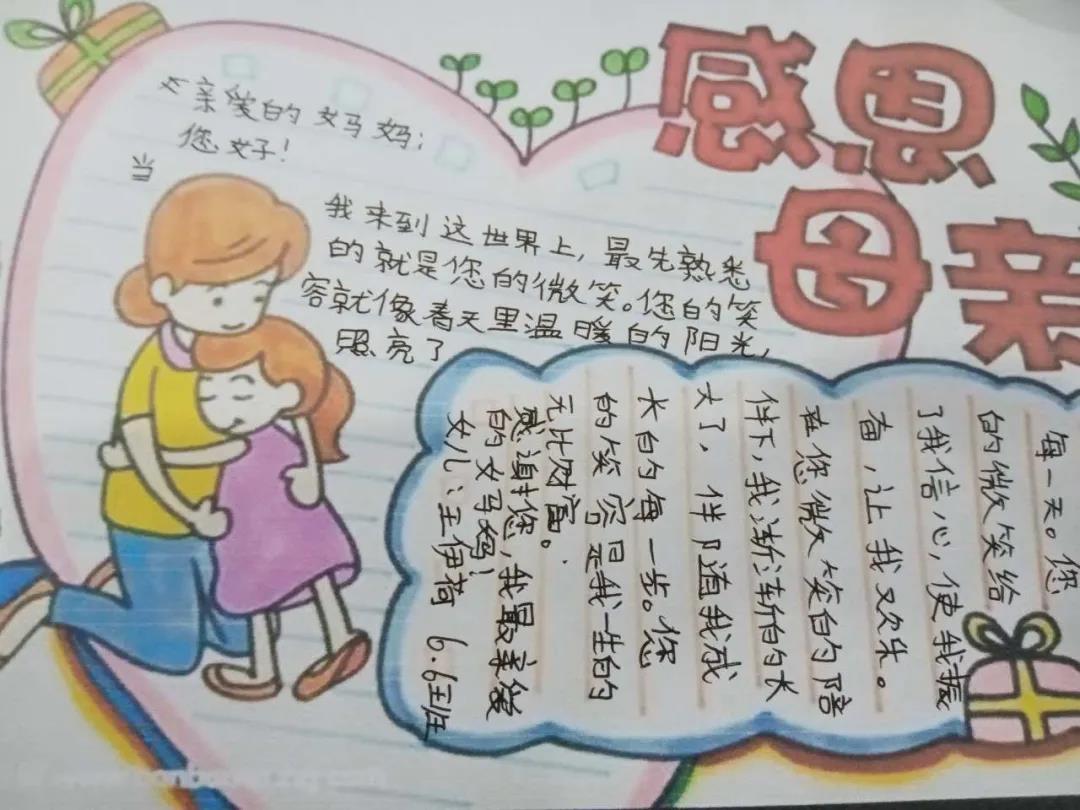 感恩
母亲
亲爱的妈妈:
您好!
当
我来到这世界上,最先熟悉
的就是您的微笑。您的笑
容就像春天里温暖的阳光,
照亮了
每一天。您
的微笑给
了我信心,使我振
奋,让我欢乐。
在您微笑的陪
伴下,我渐渐的长
大了,伴随我成
长的每一步。您
的笑容是我一生的
无比财富。
感谢您,我最亲爱
的妈妈!
女儿:王伊荷 6.6班